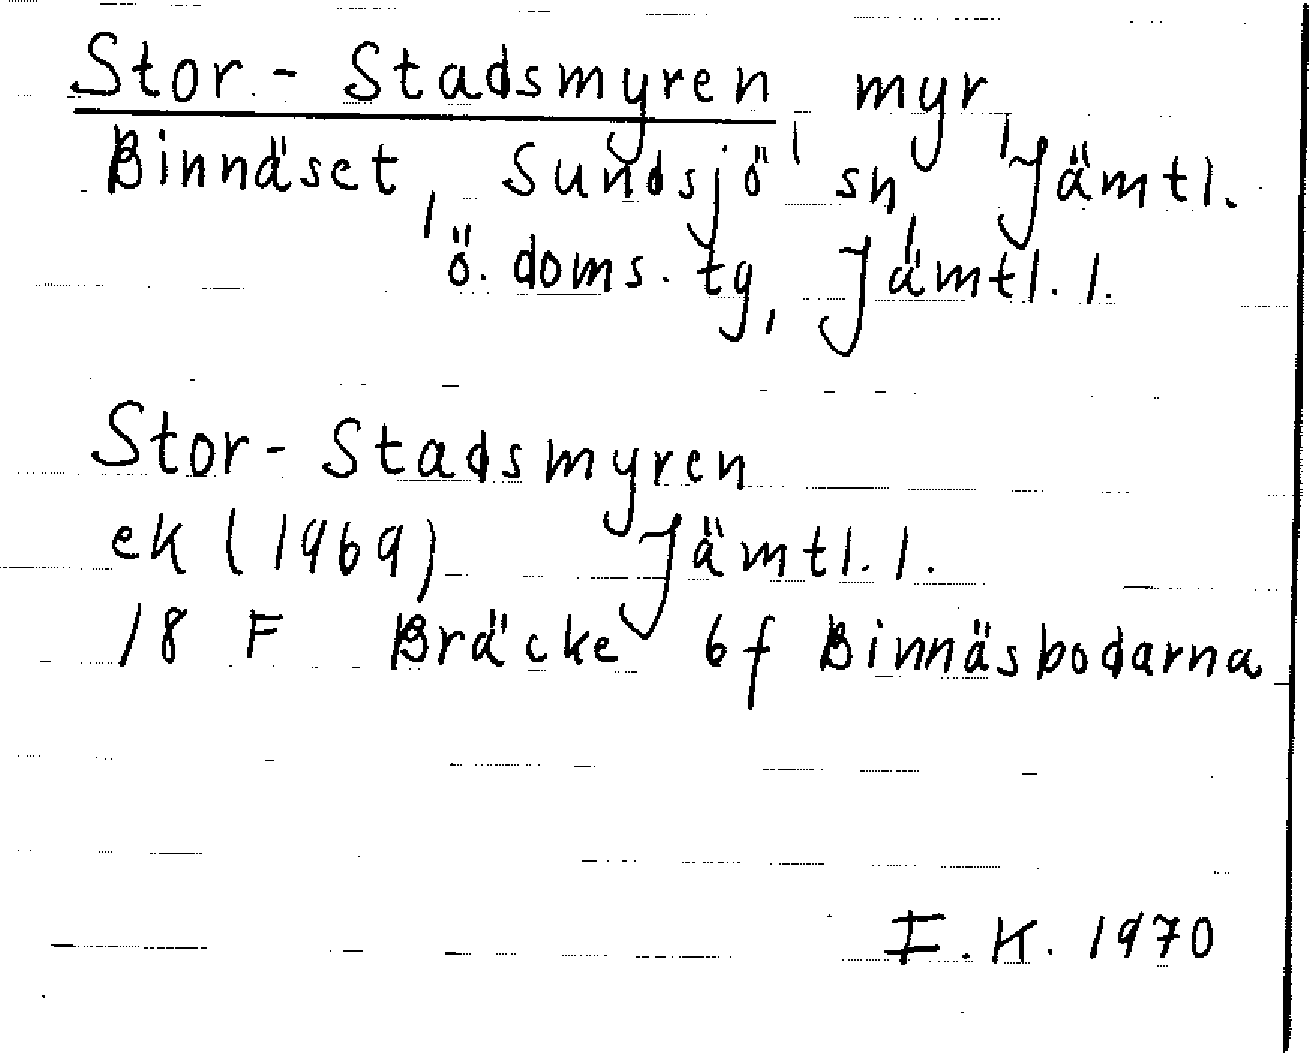 Stor-Stadsmyren, myr,
Binnäset, Sundsjö sn, Jämtl.
ö. doms. tg, Jämtl. l.
Stor-Stadsmyren
ek (1969) Jämtl. l.
18 F Bräcke 6f Binnäsbodarna
I. K. 1970